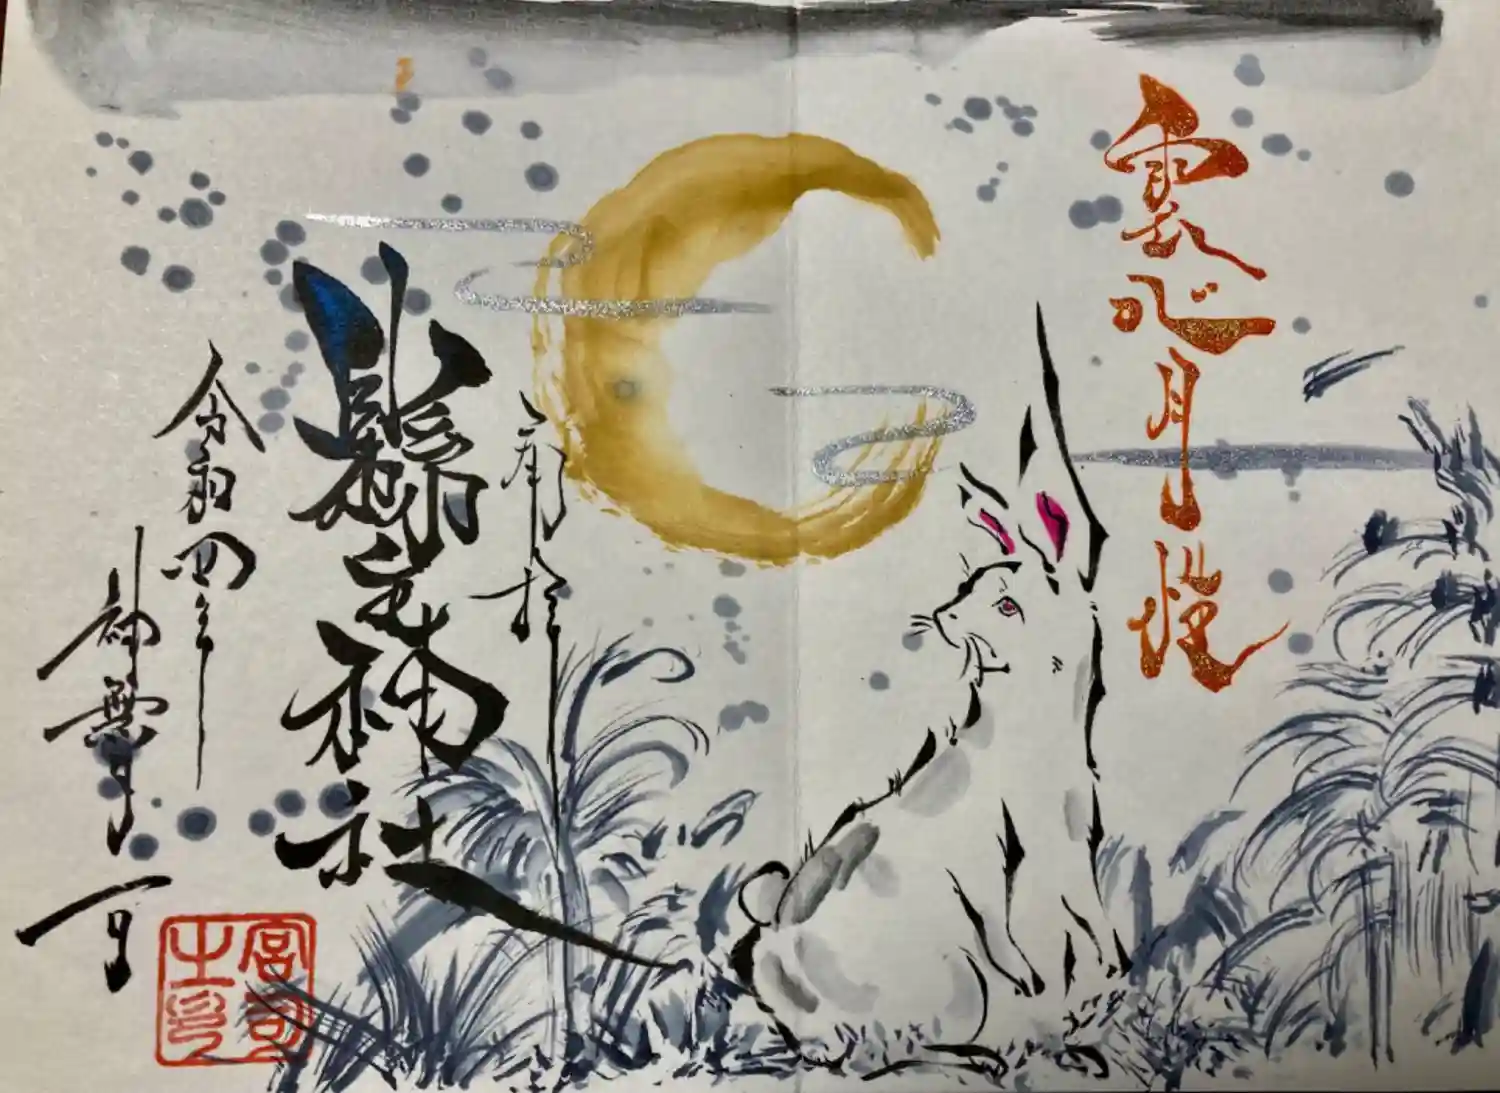 雲心月性
奉拝
縣主神社
令和四年
神無月
一日
宮司
之印